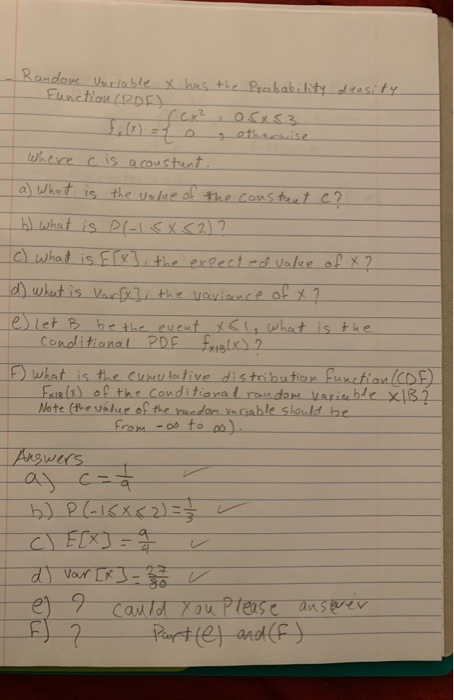 - Random Variable X has the Probability density
Function (PDF)
fₓ(x) = { Cx² , 0≤x≤3
0 , otherwise
where c is a constant.
a) What is the value of the constant c?
b) what is P(-1≤x≤2)?
c) what is E[x], the expected value of x?
d) what is Var[x], the variance of x?
e) let B be the event x≤1, what is the
Conditional PDF fx|B(x)?
F) what is the cumulative distribution function (CDF)
Fx|B(x) of the conditional random variable x|B?
Note (the value of the random variable should be
From -∞ to ∞).
Answers
a) c = 1/9 ✓
b) P(-1≤x≤2) = 1/3 ✓
c) E[x] = 9/4 ✓
d) var [x] = 27/80 ✓
e) ? could you Please answer
F) ? Part (e) and (F)